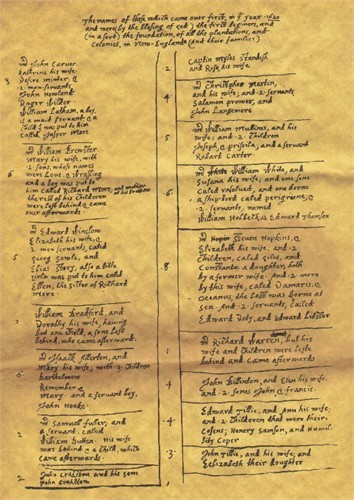 The names of those which came over first, in yᵉ year 1620
and were (by the blesing of god) the first beginers, and
(in a sort) the foundation, of all the plantations, and
Colonies, in New-England (and their families)
8
mʳ John Carver
kathrine his wife
Desire minter, &
2 man-servants
John Howland
Roger Wilder
William Latham, a boy,
& a maid servant &a
child yᵗ was put to him
called Jasper More
6
mʳ William Brewster
Mary his wife, with
2 sons, whose names
were Love & Wrasling
and a boy was put to
him called Richard More and another
of his brothers
the rest of his Children
were left behind & came
over afterwards
5
mʳ Edward Winslow
Elizabeth his wife, &
2 men servants, called
Georg Sowle, and
Elias Story, also a litle
girle was put to him called
Ellen, the sister of Richard
More
2
William Bradford, and
Dorothy his wife, having
but one child, a sone left
behind, who came afterward.
6
mʳ Isaack Allerton, and
Mary his wife, with 3 Children
Bartholmew
Remember &
Mary and a servant boy,
John Hooke
2
mʳ Samuel fuller, and
a servant, called
William Butten. His wife
was behind & a child, which
came afterwards.
2
John Crakston and his sone
John Crakston
2
Captin Myles Standish
and Rose his wife
4
mʳ Christopher Martin,
and his wife, and 2 servants
Salamon prower, and
John Langemore
5
mʳ William Mullines, and his
wife, and 2 Children
Joseph & priscila, and a servant
Robart Carter.
6
mʳ William White, and
Susana his wife, and one sone
Caled resolved, and one borne
a ship-bord called perigriene, &
2 servants, named
William Holbeck & Edward Thomson
8
mʳ Steven Hopkins, &
Elizabeth his wife, and 2
Children, caled Giles, and
Constanta a doughter, both
by a former wife. And 2 more
by this wife, caled Damaris &
Oceanus, the last was borne at
sea. And 2 servants, called
Edward Doty, and Edward Litster
1
mʳ Richard Warren, but his
wife and Children were lefte
behind and came afterwards
4
John Billinton, and Elen his wife,
and 2 sones John & francis.
4
Edward Tillie, and Ann his wife,
and 2 Children that were their
Cosens; Henery Samson, and Humil-
lity Coper
3
John Tillie, and his wife, and
Eelizabeth their doughter